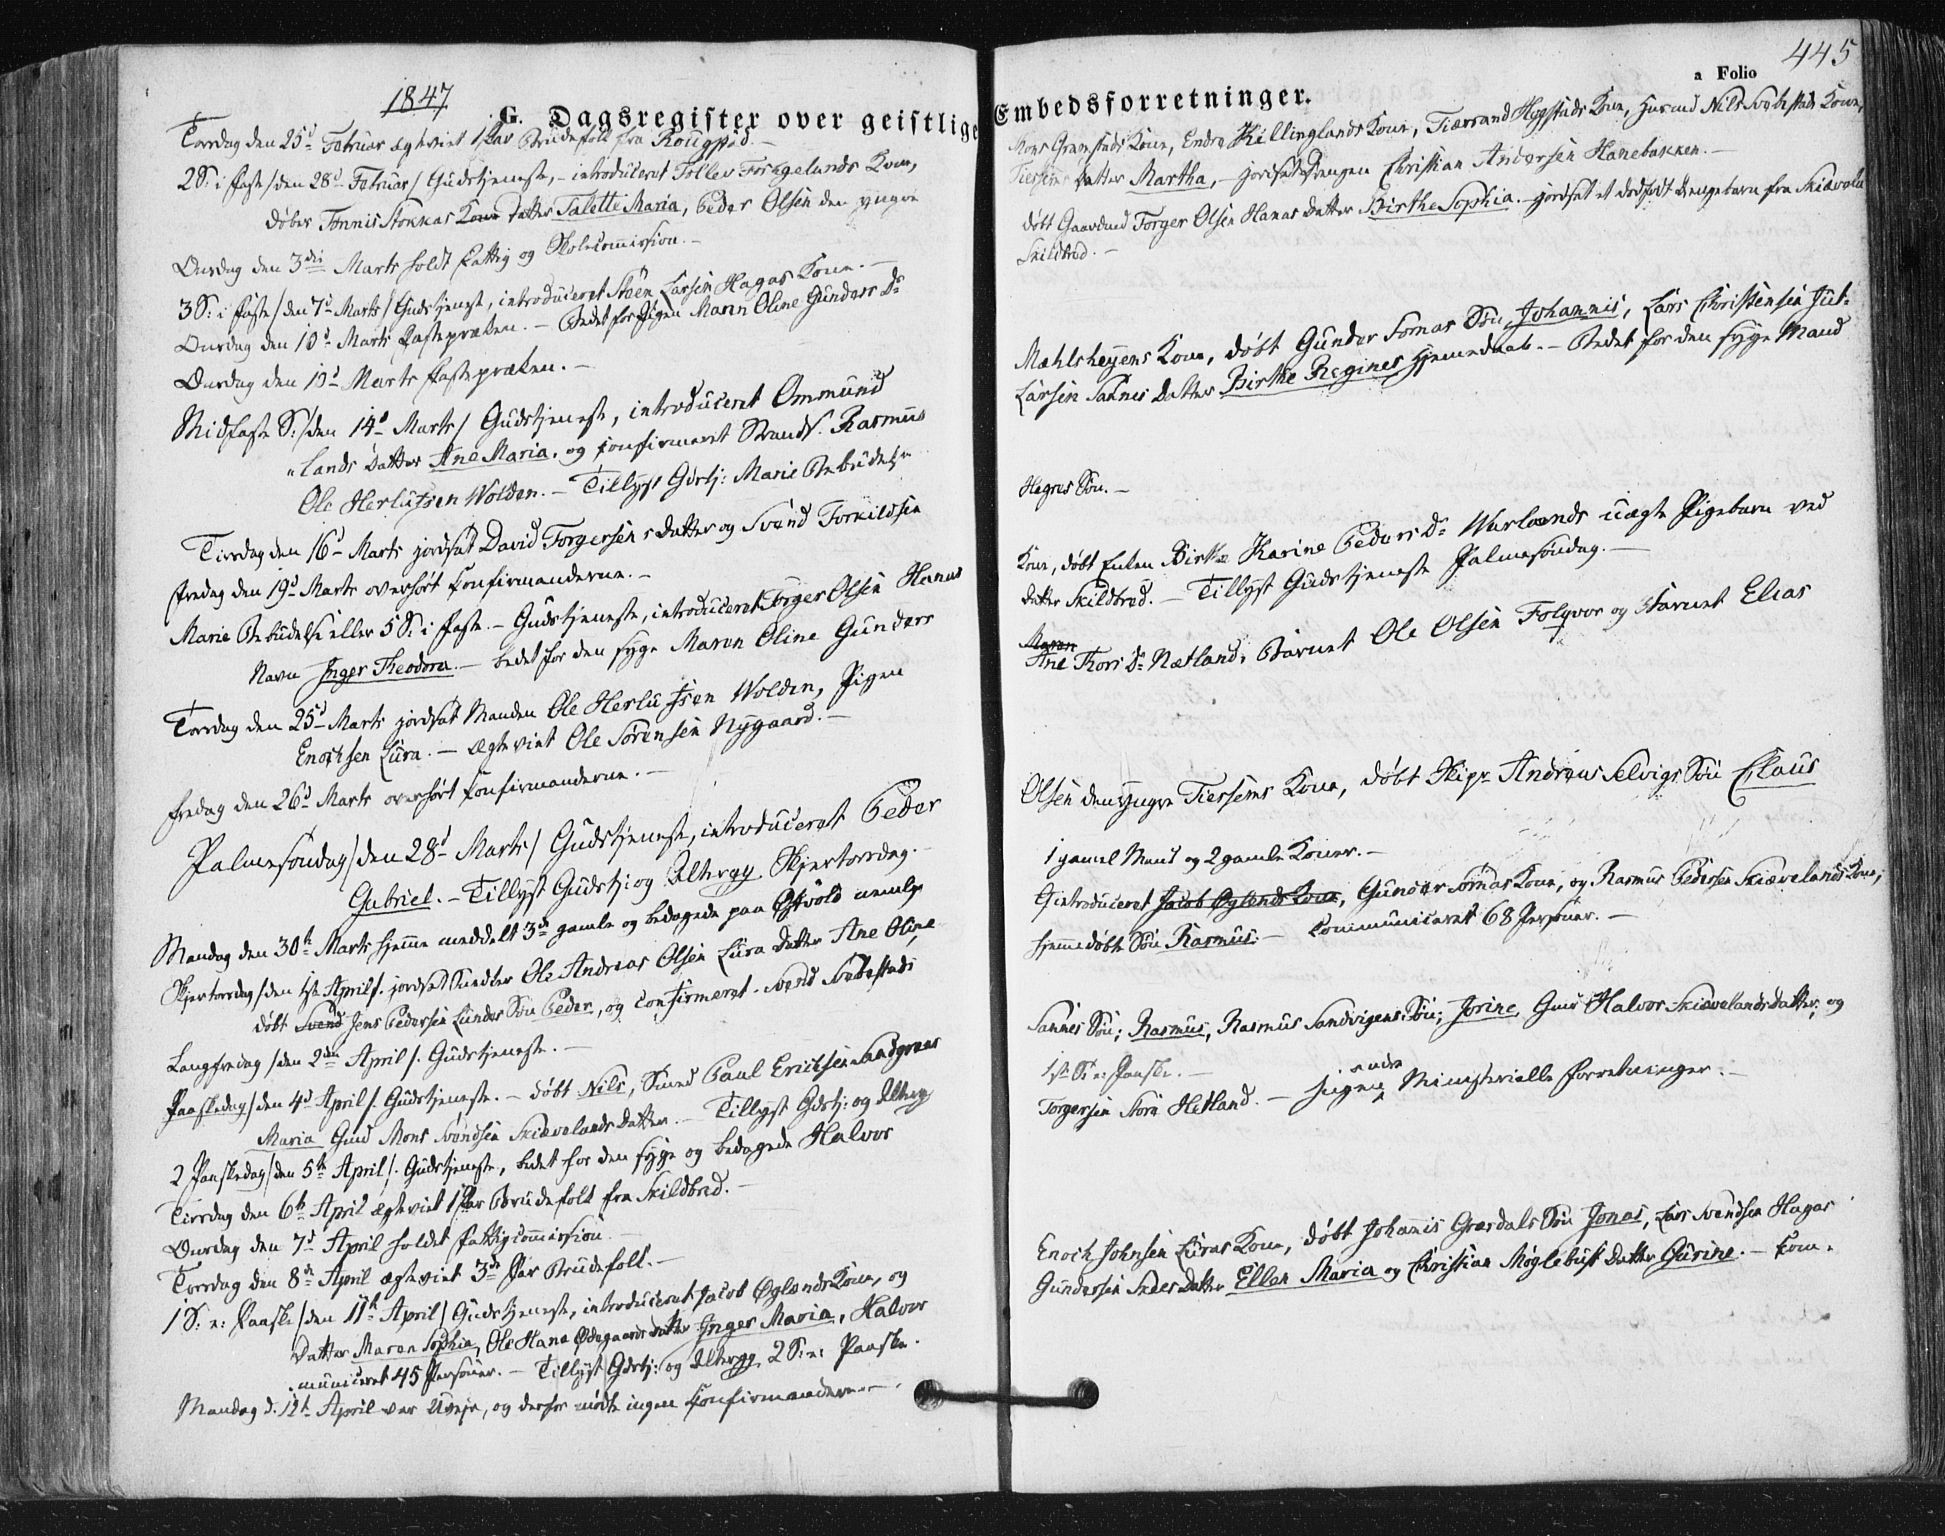 1847
G. Dagsregister over geistlige
Torsdag den 25d Februar ægteviet 1 Par Brudefolk fra
2 S: i Faste /den 28d Februar/ Gudstjeneste, - introduceret Tollev Kone,
døbes Tønnes Stokkas Kone Datter Talette Maria, Peder Olsen den yngre
Onsdag den 3die Marts holdt Fattig og Skolecommission. -
3 S: i Faste /den 7d Marts/ Gudstjeneste, introduceret Steen Larsen Hagas Kone. -
Onsdag den 10d Marts Fastepræken. - Bedet for Pigen Maren Oline Gunders Dr
Onsdag den 10d Marts Fastepræken. -
Midfaste S: /den 14d Marts/ Gudstjeneste, introduceret Ommund
"lands Datter Ane Maria, og confirmeret Strands. Rasmus
Ole Herlufsen Wolden. - Tillyst Gdstj: Marie Bebudelse
Tirsdag den 16d Marts jordsat David Torgersens Datter og Svend Torkildsen
Fredag den 19d Marts overhørt Confirmanderne. -
Marie Bebudelse eller 5 S: i Faste. - Gudstjeneste, introduceret Torger Olsen Hanas
Navn Inger Theodora. - bedet for den syge Maren Oline Gunders
Torsdag den 25d Marts jordsat Manden Ole Herlufsen Wolden, Pigen
Enochsen Lura. - ægteviet Ole Sørensen Nygaard. -
Fredag den 26d Marts overhørt Confirmanderne. -
Palmesøndag /den 28d Marts/ Gudstjeneste, introduceret Peder
Gabriel. - Tillyst Gudstj: og Altergg. Skjertorsdag. -
Mandag den 30te Marts hjemme meddelt 3de gamle og bedagede paa nemlig
Skjertorsdag /den 1ste April/. jordsat Ole Andreas Olsen Lura Datter Ane Oline,
døbt Svend Jens Pedersen Lundes Søn Peder, og confirmeret. Svend Svebestads
Langfredag /den 2den April/. Gudstjeneste. -
Paaskedag /den 4d April/. Gudstjeneste. - døbt Nils, Smed Paul Erichsen Sandgrens
Maria Gmd Mons Svendsen Skiævelands Datter. - Tillyst Gdstj: og Altergg
2 Paaskedag /den 5te April/. Gudstjeneste, bedet for den syge og bedagede Halvor
Tirsdag den 6te April ægteviet 1 Par Brudefolk fra Skildbred. -
Onsdag den 7d April holdet Fattigcommission. -
Torsdag den 8de April ægteviet 3de Par Brudefolk. -
1 S: e: Paaske /den 11te April/ Gudstjeneste, introduceret Jacob Øglænds Kone, og
Datter Maren Sophia, Ole Hana Ødegaards Datter Inger Maria, Halvor
municeret 45 Personer. - Tillyst Gdstj: og Altergg. 2 S: e: Paaske.
Mandag d. 12te April var Uveir, og derfor mødte ingen Confirmandere. -
445
a Folio
Embedsforretninger.
Mons Gramstads Kone, Endre Killinglands Kone, Tiærrand Hogstads Kone, Huusmd Nils Svebestads Kone,
Tiessems Datter Martha, - jordsat Drengen Christian Andersen Hanebakken. -
døbt Gaardmd Torger Olsen Hanas Datter Birthe Sophia. jordsat et dødfødt Drengebarn fra Skiæveland
Skildbred. -
Mæhlsheyens Kone, døbt Gunder Somas Søn Johannis, Lars Christensen Jut-
Larsen Sannes Datter Birthe Regines Hjemmedaab. - Bedet for den syge Mand
Hegres Søn. -
Kone, døbt Enken Birthe Karine Peders Dr Warlands uægte Pigebarn ved
Datter Skildbred. - Tillyst Gudstjeneste Palmesøndag. -
Maren
Ane Thors Dr Nætland, Barnet Ole Olsen Folgvor og Barnet Elias
Olsen den yngre Tiessems Kone, døbt Skipr Andreas Selvigs Søn Claus
1 gammel Mand og 2 gamle Koner. -
introduceret Jacob Øglends Kone, Gunder Somas Kone, og Rasmus Pedersen Skiævelands Kone,
hjemmedøbte Søn Rasmus. - Communiceret 68 Personer. -
Sannes Søn; Rasmus, Rasmus Sandvigens Søn; Jorine, Gmd Halvor Skiævelands Datter; og
1ste S: e: Paaske. -
andre
Torgersen Store Hetland. - Ingen Ministerielle Forretninger. -
Enoch Johnsen Luras Kone, døbt Johannis Grærdals Søn Jonas, Lars Svendsen Hagas
Gundersen Datter Ellen Maria og Christian Møglebust Datter Gurine. - Com-